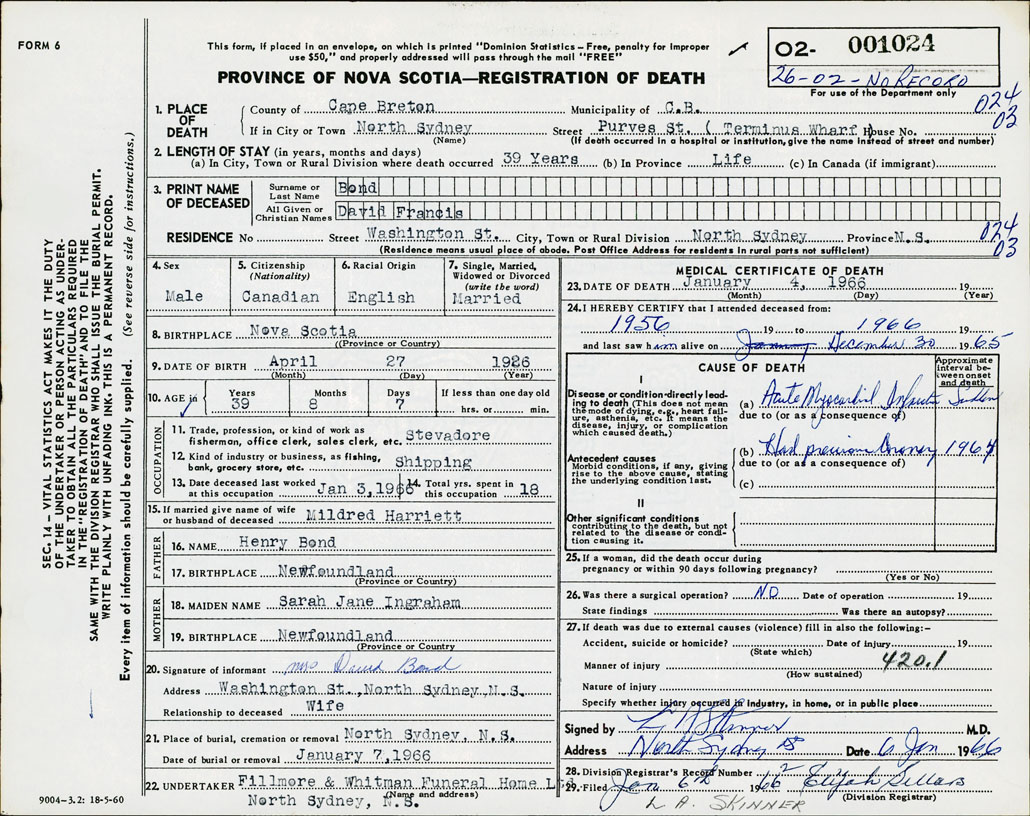 FORM 6
This form, if placed in an envelope, on which is printed "Dominion Statistics – Free, penalty for improper
use $50," and properly addressed will pass through the mail "FREE"
PROVINCE OF NOVA SCOTIA—REGISTRATION OF DEATH
02- 001024
26-02-NO RECORD
For use of the Department only
024
02
1. PLACE OF DEATH
County of Cape Breton Municipality of C.B.
If in City or Town North Sydney Street Purves St. ( Terminus Wharf ) House No.
(Name) (If death occurred in a hospital or institution, give the name instead of street and number)
2. LENGTH OF STAY (in years, months and days)
(a) In City, Town or Rural Division where death occurred 39 Years (b) In Province Life (c) In Canada (if immigrant)
3. PRINT NAME OF DECEASED
Surname or Last Name Bond
All Given or Christian Names David Francis
024
03
RESIDENCE No Street Washington St. City, Town or Rural Division North Sydney Province N.S.
(Residence means usual place of abode. Post Office Address for residents in rural parts not sufficient)
4. Sex
Male
5. Citizenship
(Nationality)
Canadian
6. Racial Origin
English
7. Single, Married,
Widowed or Divorced
(write the word)
Married
8. BIRTHPLACE Nova Scotia
(Province or Country)
9. DATE OF BIRTH April 27 1926
(Month) (Day) (Year)
10. AGE in Years Months Days If less than one day old
39 8 7 hrs. or min.
OCCUPATION
11. Trade, profession, or kind of work as
fisherman, office clerk, sales clerk, etc. Stevadore
12. Kind of industry or business, as fishing,
bank, grocery store, etc. Shipping
13. Date deceased last worked
at this occupation Jan 3,1966
14. Total yrs. spent in
this occupation 18
15. If married give name of wife
or husband of deceased Mildred Harriett
FATHER
16. NAME Henry Bond
17. BIRTHPLACE Newfoundland
(Province or Country)
MOTHER
18. MAIDEN NAME Sarah Jane Ingraham
19. BIRTHPLACE Newfoundland
(Province or Country)
20. Signature of informant Mrs David Bond
Address Washington St., North Sydney, N.S.
Relationship to deceased Wife
21. Place of burial, cremation or removal North Sydney, N.S.
Date of burial or removal January 7,1966
22. UNDERTAKER Fillmore & Whitman Funeral Home Ltd
(Name and address)
North Sydney, N.S.
MEDICAL CERTIFICATE OF DEATH
23. DATE OF DEATH January 4, 1966 19
(Month) (Day) (Year)
24. I HEREBY CERTIFY that I attended deceased from:
1956 19 to 1966 19
and last saw him alive on January December 30 1965
CAUSE OF DEATH
Approximate
interval between onset
and death
I
Disease or condition directly leading
to death (This does not mean
the mode of dying, e.g., heart failure,
asthenia, etc. It means the
disease, injury, or complication
which caused death.)
(a) Acute Myocardial Infarction Sudden
due to (or as a consequence of)
Antecedent causes
Morbid conditions, if any, giving
rise to the above cause, stating
the underlying condition last.
(b) Had previous Coronary 1964
due to (or as a consequence of)
(c)
II
Other significant conditions
contributing to the death, but not
related to the disease or condition
causing it.
25. If a woman, did the death occur during
pregnancy or within 90 days following pregnancy?
(Yes or No)
26. Was there a surgical operation? NO Date of operation 19
State findings Was there an autopsy?
27. If death was due to external causes (violence) fill in also the following:–
Accident, suicide or homicide? Date of injury 19
(State which)
Manner of injury 420.1
(How sustained)
Nature of injury
Specify whether injury occurred in industry, in home, or in public place
Signed by L A Skinner M.D.
Address North Sydney NS Date 6 Jan 1966
28. Division Registrar's Record Number 2
29. Filed Jan 6th 1966 Elijah Sellars
(Division Registrar)
L A. SKINNER
SEC. 14 – VITAL STATISTICS ACT MAKES IT THE DUTY
OF THE UNDERTAKER OR PERSON ACTING AS UNDERTAKER
TO OBTAIN ALL THE PARTICULARS REQUIRED
IN THE "REGISTRATION OF DEATH" AND TO FILE THE
SAME WITH THE DIVISION REGISTRAR WHO SHALL ISSUE THE BURIAL PERMIT.
WRITE PLAINLY WITH UNFADING INK. THIS IS A PERMANENT RECORD.
Every item of information should be carefully supplied. (See reverse side for instructions.)
9004–3.2: 18-5-60